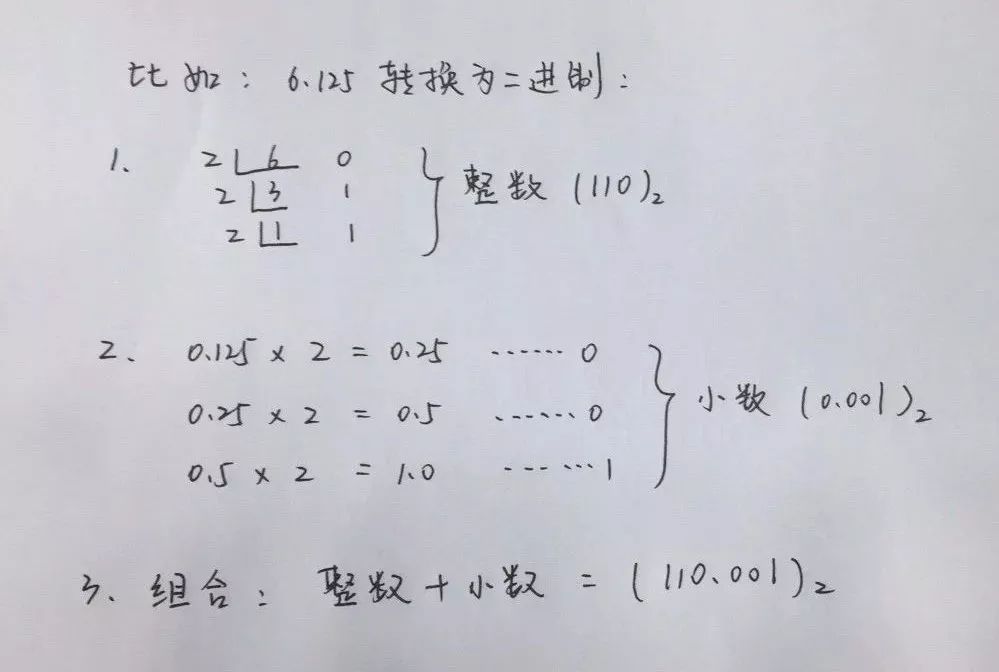 比如：6.125 转换为二进制：
1、 2 6 0
2 3 1
2 1 1
整数 (110)₂
2、 0.125 × 2 = 0.25 ······ 0
0.25 × 2 = 0.5 ······ 0
0.5 × 2 = 1.0 ······ 1
小数 (0.001)₂
3、组合：整数 + 小数 = (110.001)₂